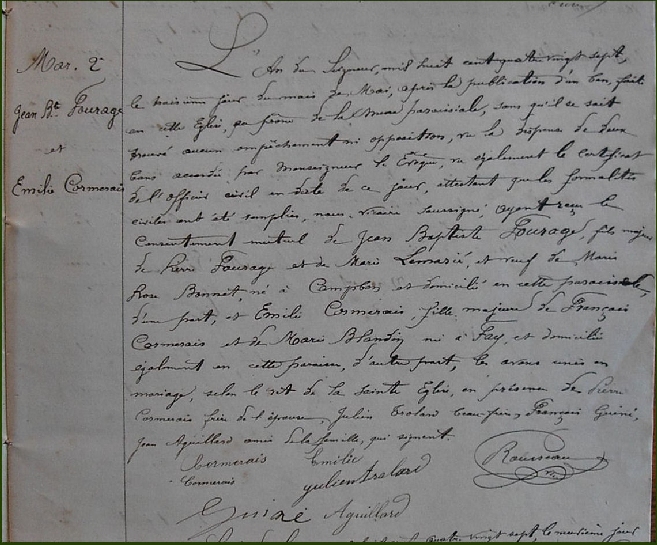 Mar. 2
Jean Bte Fourage
et
Emilie Cormerais
L'An du Seigneur, mil huit cent quatre vingt sept,
le troisième jour du mois de Mai, après la publication d'un ban, faite
en cette Eglise, au prône de la messe paroissiale, sans qu'il se soit
trouvé aucun empêchement ni opposition, vu la dispense de deux
bans accordée par Monseigneur l'Evêque, vu également le certificat
de l'officier civil en date de ce jour, attestant que les formalités
civiles ont été remplies, nous, vicaire soussigné, ayant reçu le
Consentement mutuel de Jean Baptiste Fourage, fils majeur
de Pierre Fourage et de Marie Lemarié, et veuf de Marie
Rose Bonnet, né à Campbon, et domicilié en cette paroisse,
d'un part, et Emilie Cormerais, fille majeure de François
Cormerais et de Marie Blandin née à Fay, et domiciliée
également en cette paroisse, d'autre part, les avons unis en
mariage, selon le rit de la Sainte Eglise, en présence de Pierre
Cormerais frère de l'épouse, Julien beau-frère, François Guiné,
Jean Aguillard amis de la famille, qui signent.
Cormerais Emilie
Cormerais
julien
Rousseau
Guiné Aguillard
quatre vingt sept, le jour